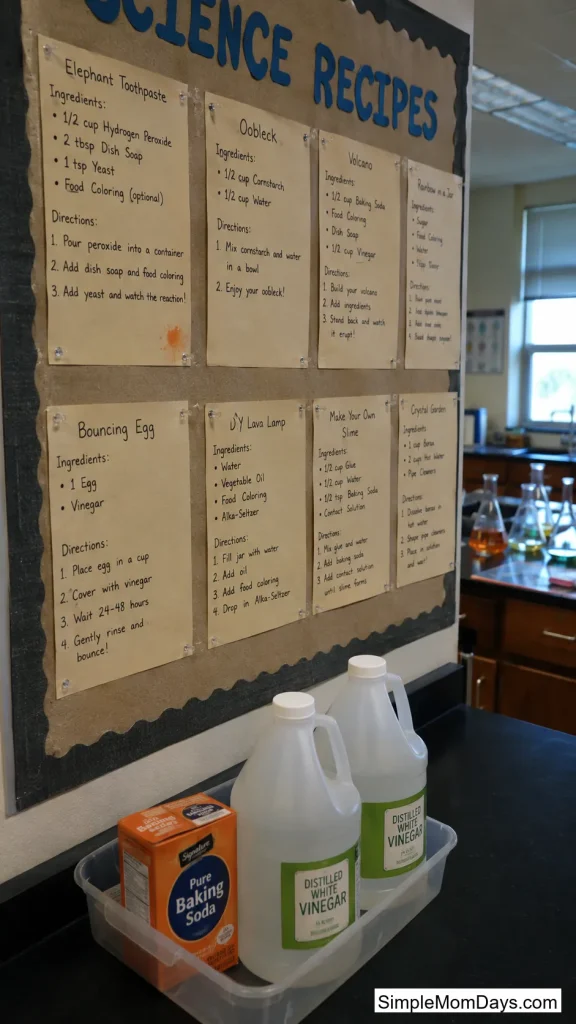 SCIENCE RECIPES
Elephant Toothpaste
Ingredients:
• 1/2 cup Hydrogen Peroxide
• 2 tbsp Dish Soap
• 1 tsp Yeast
• Food Coloring (optional)
Directions:
1. Pour peroxide into a container
2. Add dish soap and food coloring
3. Add yeast and watch the reaction!
Oobleck
Ingredients:
• 1/2 cup Cornstarch
• 1/2 cup Water
Directions:
1. Mix cornstarch and water
in a bowl
2. Enjoy your oobleck!
Volcano
Ingredients:
• 1/2 cup Baking Soda
• Food Coloring
• Dish Soap
• 1/2 cup Vinegar
Directions:
1. Build your volcano
2. Add ingredients
3. Stand back and watch
it erupt!
Rainbow in a Jar
Ingredients:
• Sugar
• Food Coloring
• Water
Directions:
Bouncing Egg
Ingredients:
• 1 Egg
• Vinegar
Directions:
1. Place egg in a cup
2. Cover with vinegar
3. Wait 24-48 hours
4. Gently rinse and
bounce!
DIY Lava Lamp
Ingredients:
• Water
• Vegetable Oil
• Food Coloring
• Alka-Seltzer
Directions:
1. Fill jar with water
2. Add oil
3. Add food coloring
4. Drop in Alka-Seltzer
Make Your Own
Slime
Ingredients:
• 1/2 cup Glue
• 1/2 cup Water
• 1/2 tsp Baking Soda
• Contact Solution
Directions:
1. Mix glue and water
2. Add baking soda
3. Add contact solution
until slime forms
Crystal Garden
Ingredients:
• 1 cup Borax
• 2 cups Hot Water
• Pipe Cleaners
Directions:
1. Dissolve borax in
hot water
2. Shape pipe cleaners
3. Place in solution
and wait!
Signature
Pure
Baking
Soda
DISTILLED
WHITE
VINEGAR
DISTILLED
WHITE
VINEGAR
SimpleMomDays.com